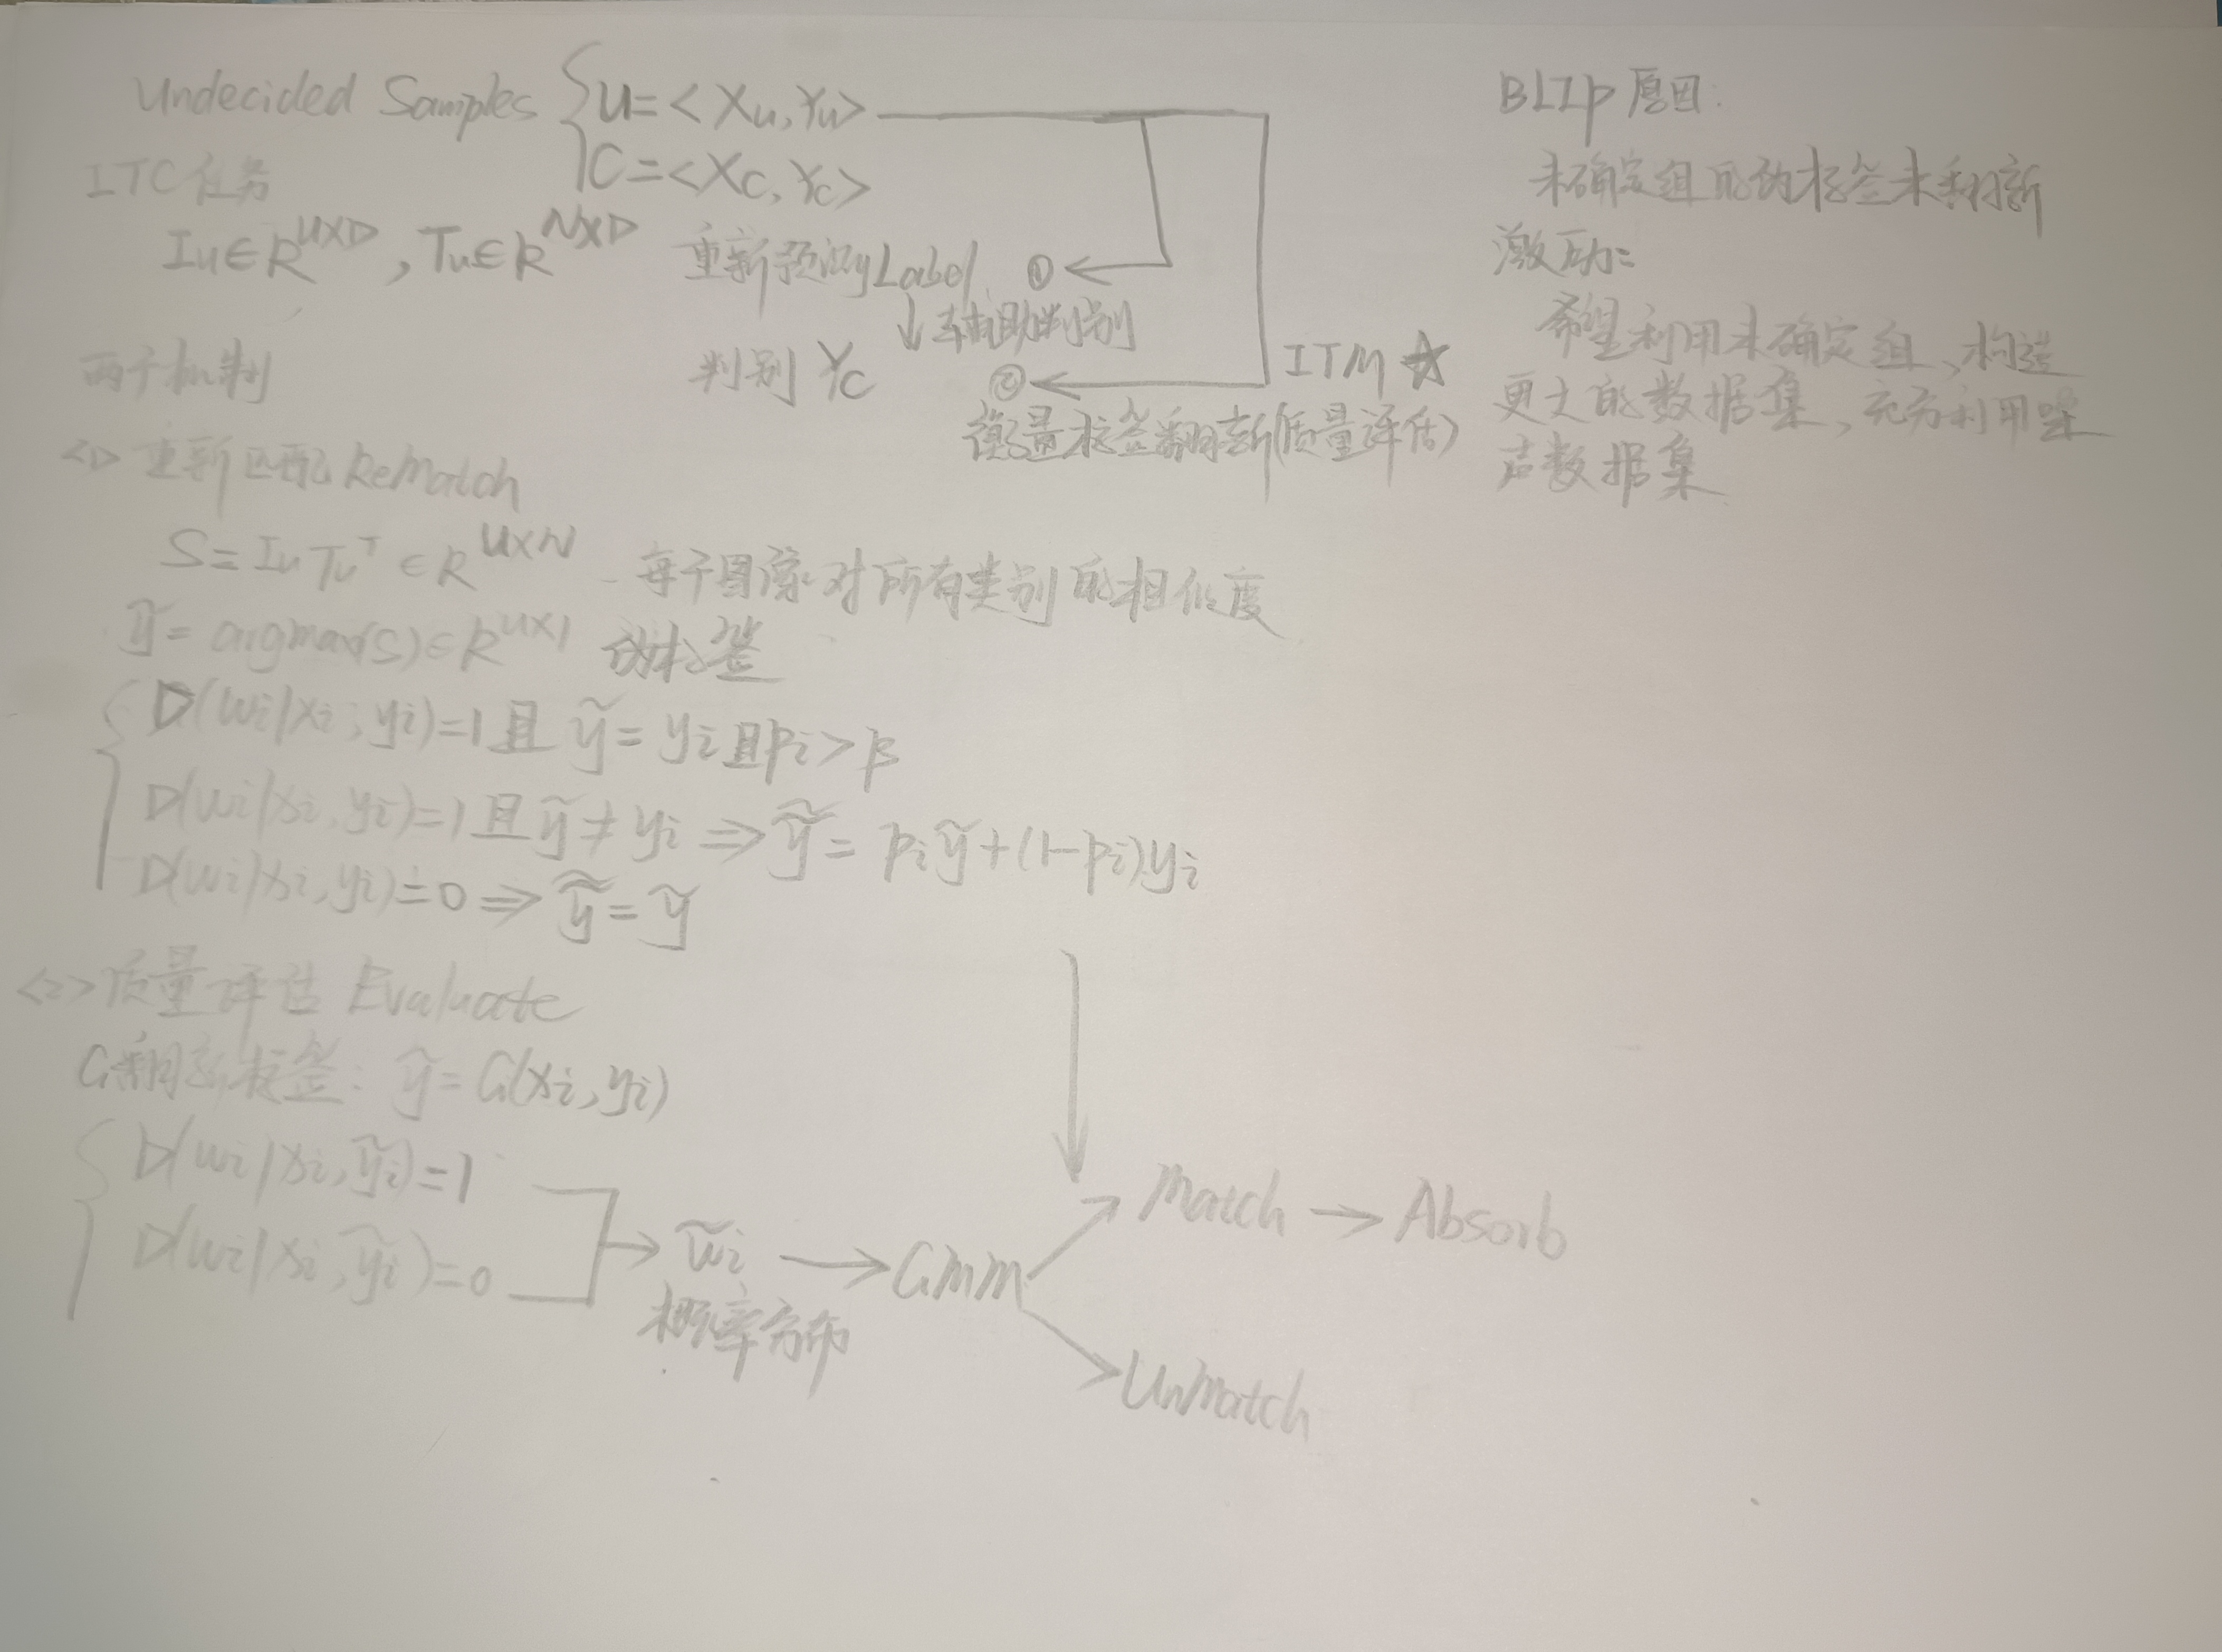 Undecided Samples { U=<Xu, Yu>
C=<Xc, Yc>
ITC任务
Iu∈R^{U×D}, Tu∈R^{N×D}
重新预测Label ①
↓辅助判别
判别 Yc ②
ITM ☆
衡量标签翻新(质量评估)
两个机制
<1> 重新匹配 ReMatch
S=IuTu^T ∈R^{U×N} 每个图像对所有类别的相似度
ỹ=argmax(S)∈R^{U×1} 伪标签
{ D(wi|xi, yi)=1且 ỹ=yi且pi>β
D(wi|xi, yi)=1且ỹ≠yi ⇒ ỹ̃=piỹ+(1-pi)yi
D(wi|xi, yi)=0 ⇒ ỹ̃=ỹ
<2> 质量评估 Evaluate
G翻新标签: ỹ=G(xi, yi)
{ D(wi|xi, ỹi)=1
D(wi|xi, ỹi)=0
→ w̃i → GMM
概率分布
Match → Absorb
UnMatch
BLIP 原因:
未确定组的伪标签未翻新
激励:
希望利用未确定组、构造
更大的数据集, 充分利用噪
声数据集